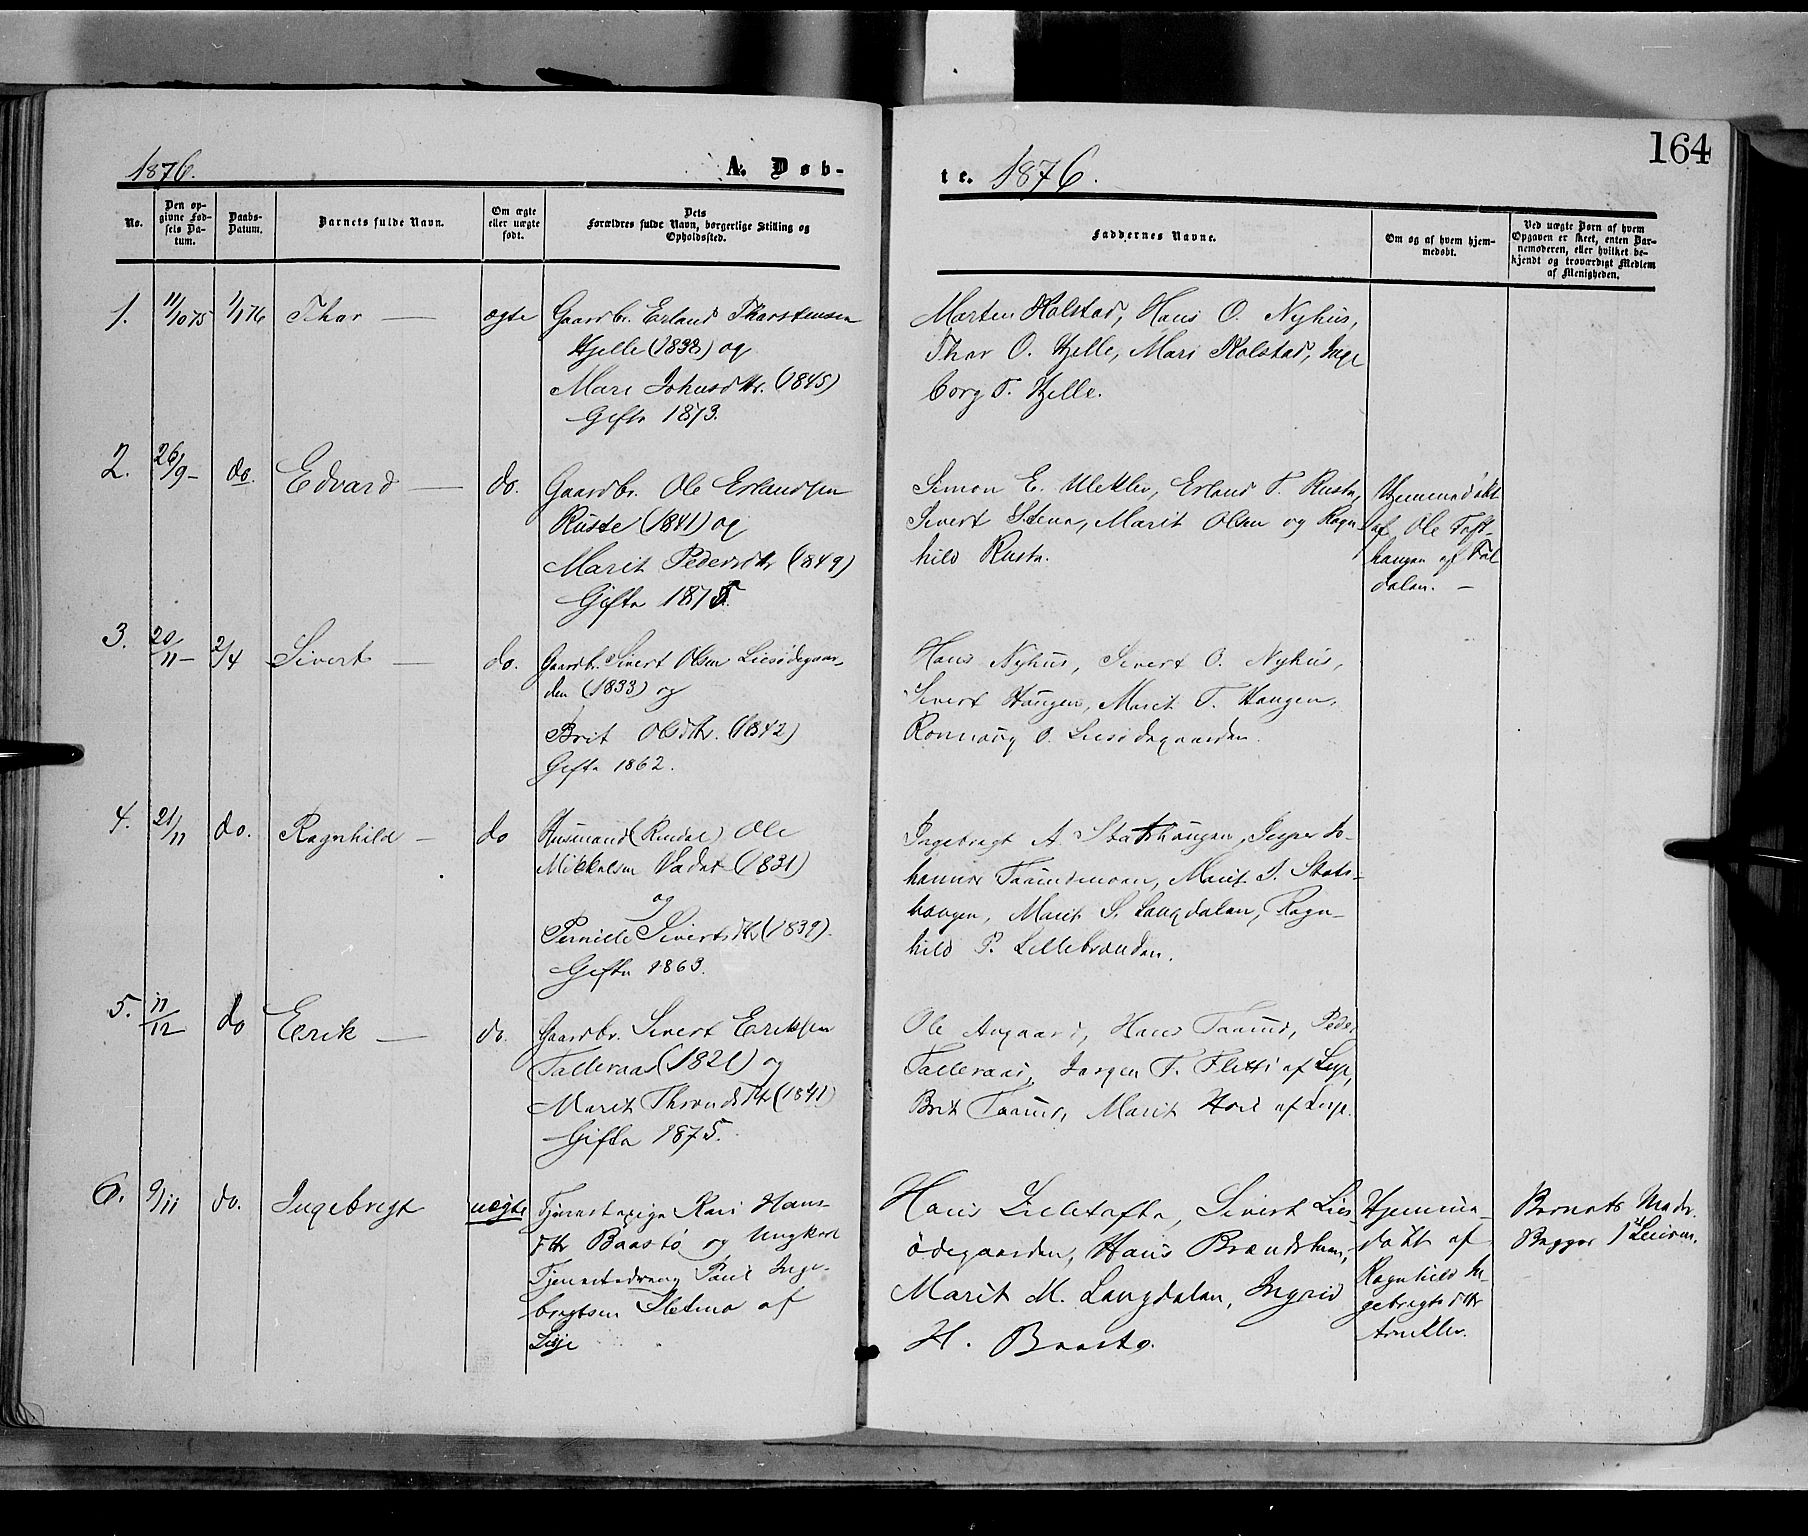 164
1876.
A. Døb-
te. 1876.
No.
Den op-
givne Fød-
sels Da-
tum.
Daabs-
Datum.
Barnets fulde Navn.
Om ægte
eller uægte
født.
Dets
Forældres fulde Navn, borgerlige Stilling og
Opholdssted.
Faddernes Navne.
Om og af hvem hjem-
medøbt.
Ved uægte Børn af hvem
Opgaven er skeet, enten Bar-
nemoderen, eller hvilket be-
kjendt og troværdigt Medlem
af Menigheden.
1. 11/10 75 1/1 76 Thor — ægte
Gaardbr. Erland Thorstensen
Hjelle (1838) og
Mari Johnsdtr. (1845)
Gifte 1873.
Morten Kolstad, Hans O. Nyhus,
Thor O. Hjelle, Mari Kolstad, Inge
borg T. Hjelle.
2. 26/9 - do. Edvard — do.
Gaardbr. Ole Erlandsen
Ruste (1841) og
Marit Pedersdtr (1849)
Gifte 1875.
Simon E. Uleklev, Erland T. Ruste,
Sivert Stene, Marit Olsen og Ragn-
hild Ruste.
Hjemmedøbt
af Ole Toft-
haugen af
dalen. —
3. 20/11 - 2/4 Sivert — do.
Gaardbr. Sivert Olsen Liesødegaar-
den (1833) og
Brit Olsdtr. (1842)
Gifte 1862.
Hans Nyhus, Sivert O. Nyhus,
Sivert Haugen, Marit T. Haugen,
Rønnaug O. Liesødegaarden.
4. 21/11 do. Ragnhild — do
Husmand (Rindal) Ole
Mikkelsen Vadet (1831)
og
Pernille Sivertsdtr (1839).
Gifte 1863.
Ingebregt A. Statshaugen, Jesper Jo-
hannes Taamdmoen, Marit J. Stats-
haugen, Marit S. Langdalen, Ragn-
hild P. Lillebraenden.
5. 11/12 do Eerik — do.
Gaardbr. Sivert Eeriksen
Talleraas (1821) og
Marit Throndsdtr (1841)
Gifte 1875.
Ole Augaard, Hans Taamd, Peder
Talleraas, Jørgen T. Flitti af Lesje,
Brit Taamd, Marit Hove af Lesje.
6. 9/11 do. Ingebregt uægte
Tjenestepige Kari Hans-
dtr Baastø og Ungkarl
Tjenestedreng Poul Inge-
bregtsen Sletmo af
Lesje
Hans Lilletofte, Sivert Lies-
ødegaarden, Hans Brændshaug,
Marit M. Langdalen, Ingrid
H. Baastø.
Hjemme-
døbt af
Ragnhild In-
gebregtsdtr
Arneklev.
Barnets Moder.
Begges 1st Leierm.